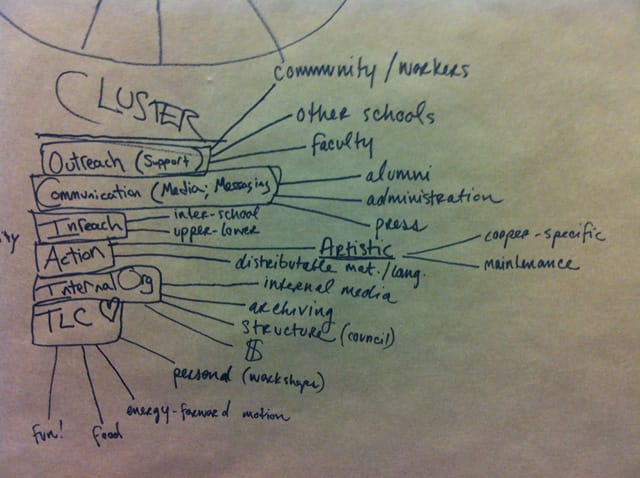 CLUSTER
community/workers
other schools
Outreach (Support)
faculty
Communication (Media; Messaging
alumni
administration
press
Inreach
inter-school
upper-lower
Action
Artistic
cooper-specific
maintenance
distributable mat./lang.
Internal Org
internal media
archiving
structure (council)
$
TLC ♡
personal (workshops)
energy-forward motion
food
fun!